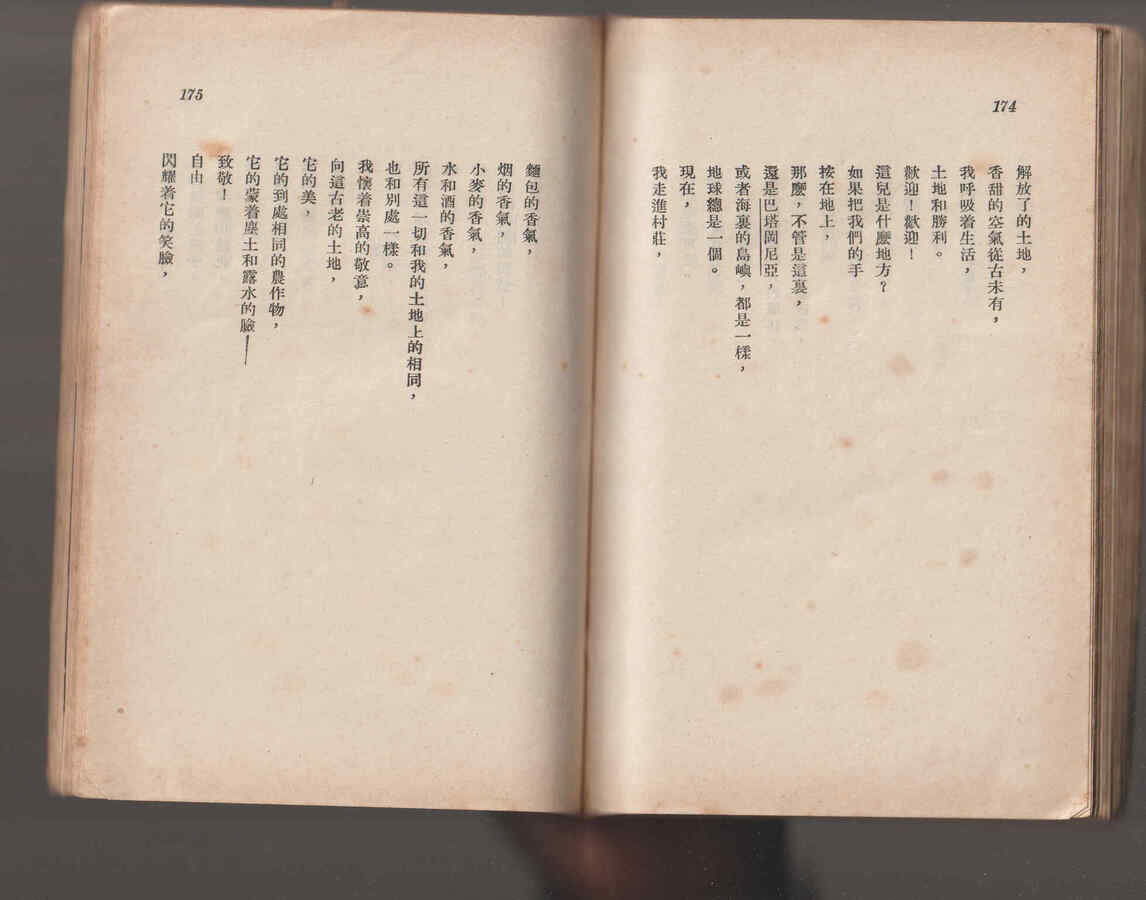 174
解放了的土地，
香甜的空氣從古未有，
我呼吸着生活，
土地和勝利。
歡迎！歡迎！
這兒是什麽地方？
如果把我們的手
按在地上，
那麽，不管是這裏，
還是巴塔岡尼亞，
或者海裏的島嶼，都是一樣，
地球總是一個。
現在，
我走進村莊，
175
麵包的香氣，
烟的香氣，
小麥的香氣，
水和酒的香氣，
所有這一切和我的土地上的相同，
也和別處一樣。
我懷着崇高的敬意，
向這古老的土地，
它的美，
它的到處相同的農作物，
它的蒙着塵土和露水的臉——
致敬！
自由
閃耀着它的笑臉，